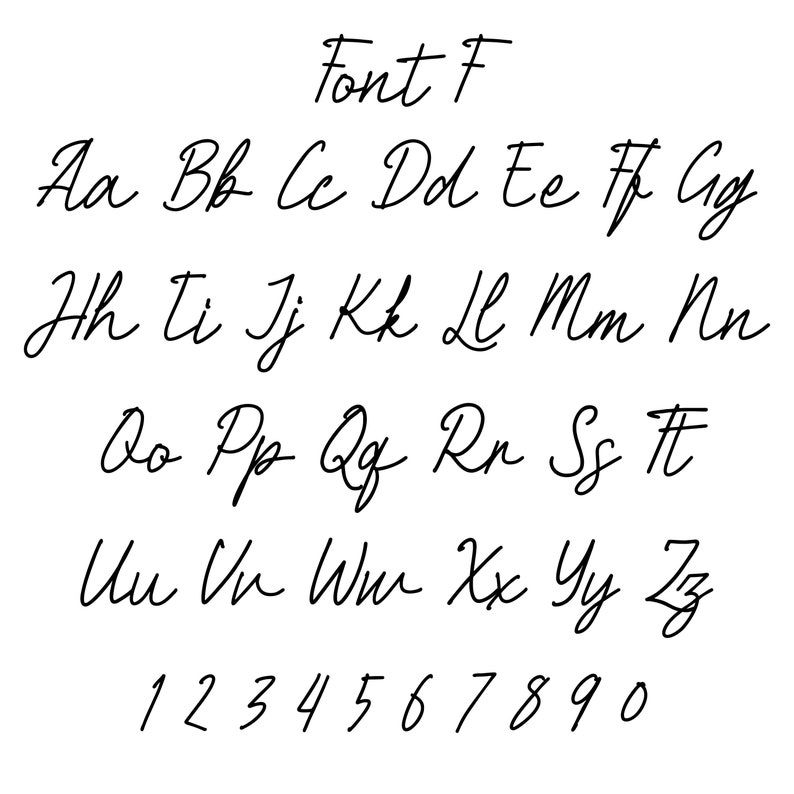 Font F
Aa Bb Cc Dd Ee Ff Gg
Hh Ii Jj Kk Ll Mm Nn
Oo Pp Qq Rr Ss Tt
Uu Vv Ww Xx Yy Zz
1 2 3 4 5 6 7 8 9 0